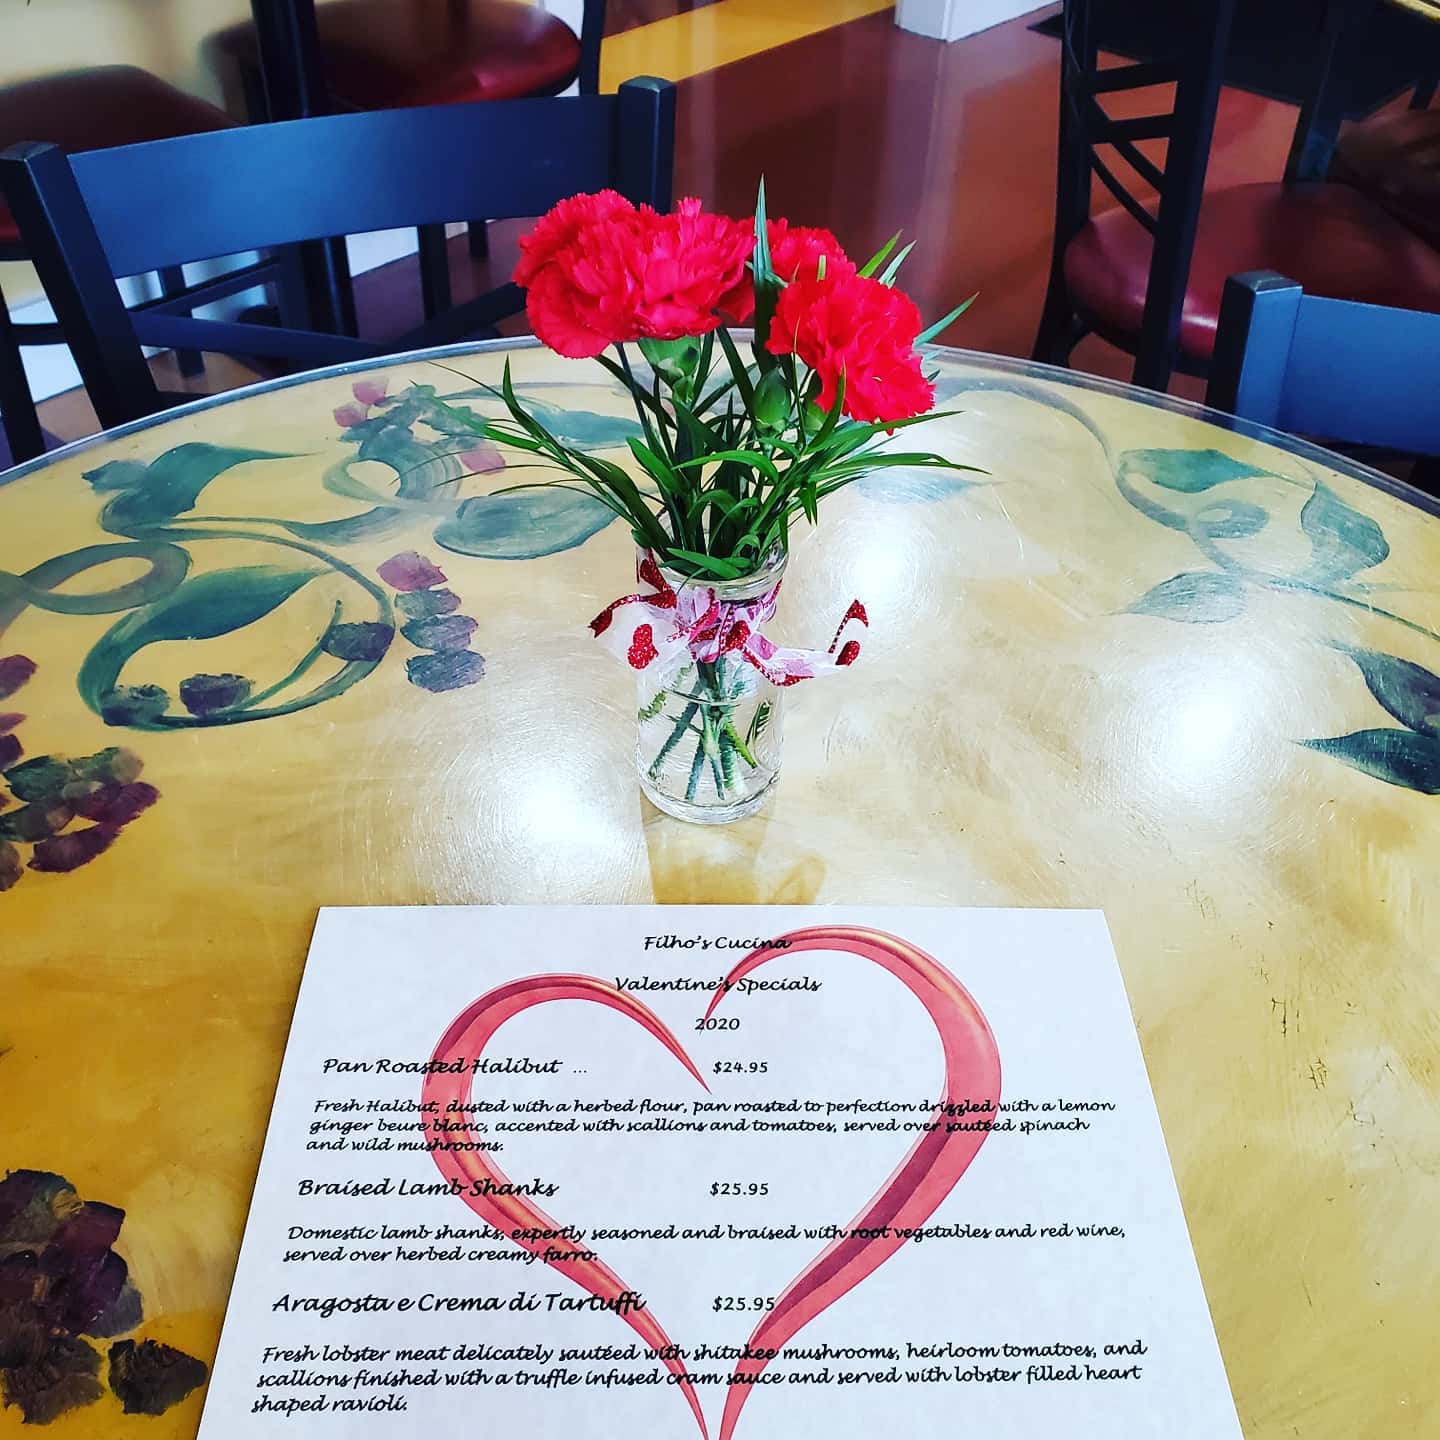 Filho's Cucina
Valentine's Specials
2020
Pan Roasted Halibut ... $24.95
Fresh Halibut, dusted with a herbed flour, pan roasted to perfection drizzled with a lemon
ginger beure blanc, accented with scallions and tomatoes, served over sautéed spinach
and wild mushrooms.
Braised Lamb Shanks $25.95
Domestic lamb shanks, expertly seasoned and braised with root vegetables and red wine,
served over herbed creamy farro.
Aragosta e Crema di Tartuffi $25.95
Fresh lobster meat delicately sautéed with shitakee mushrooms, heirloom tomatoes, and
scallions finished with a truffle infused cram sauce and served with lobster filled heart
shaped ravioli.